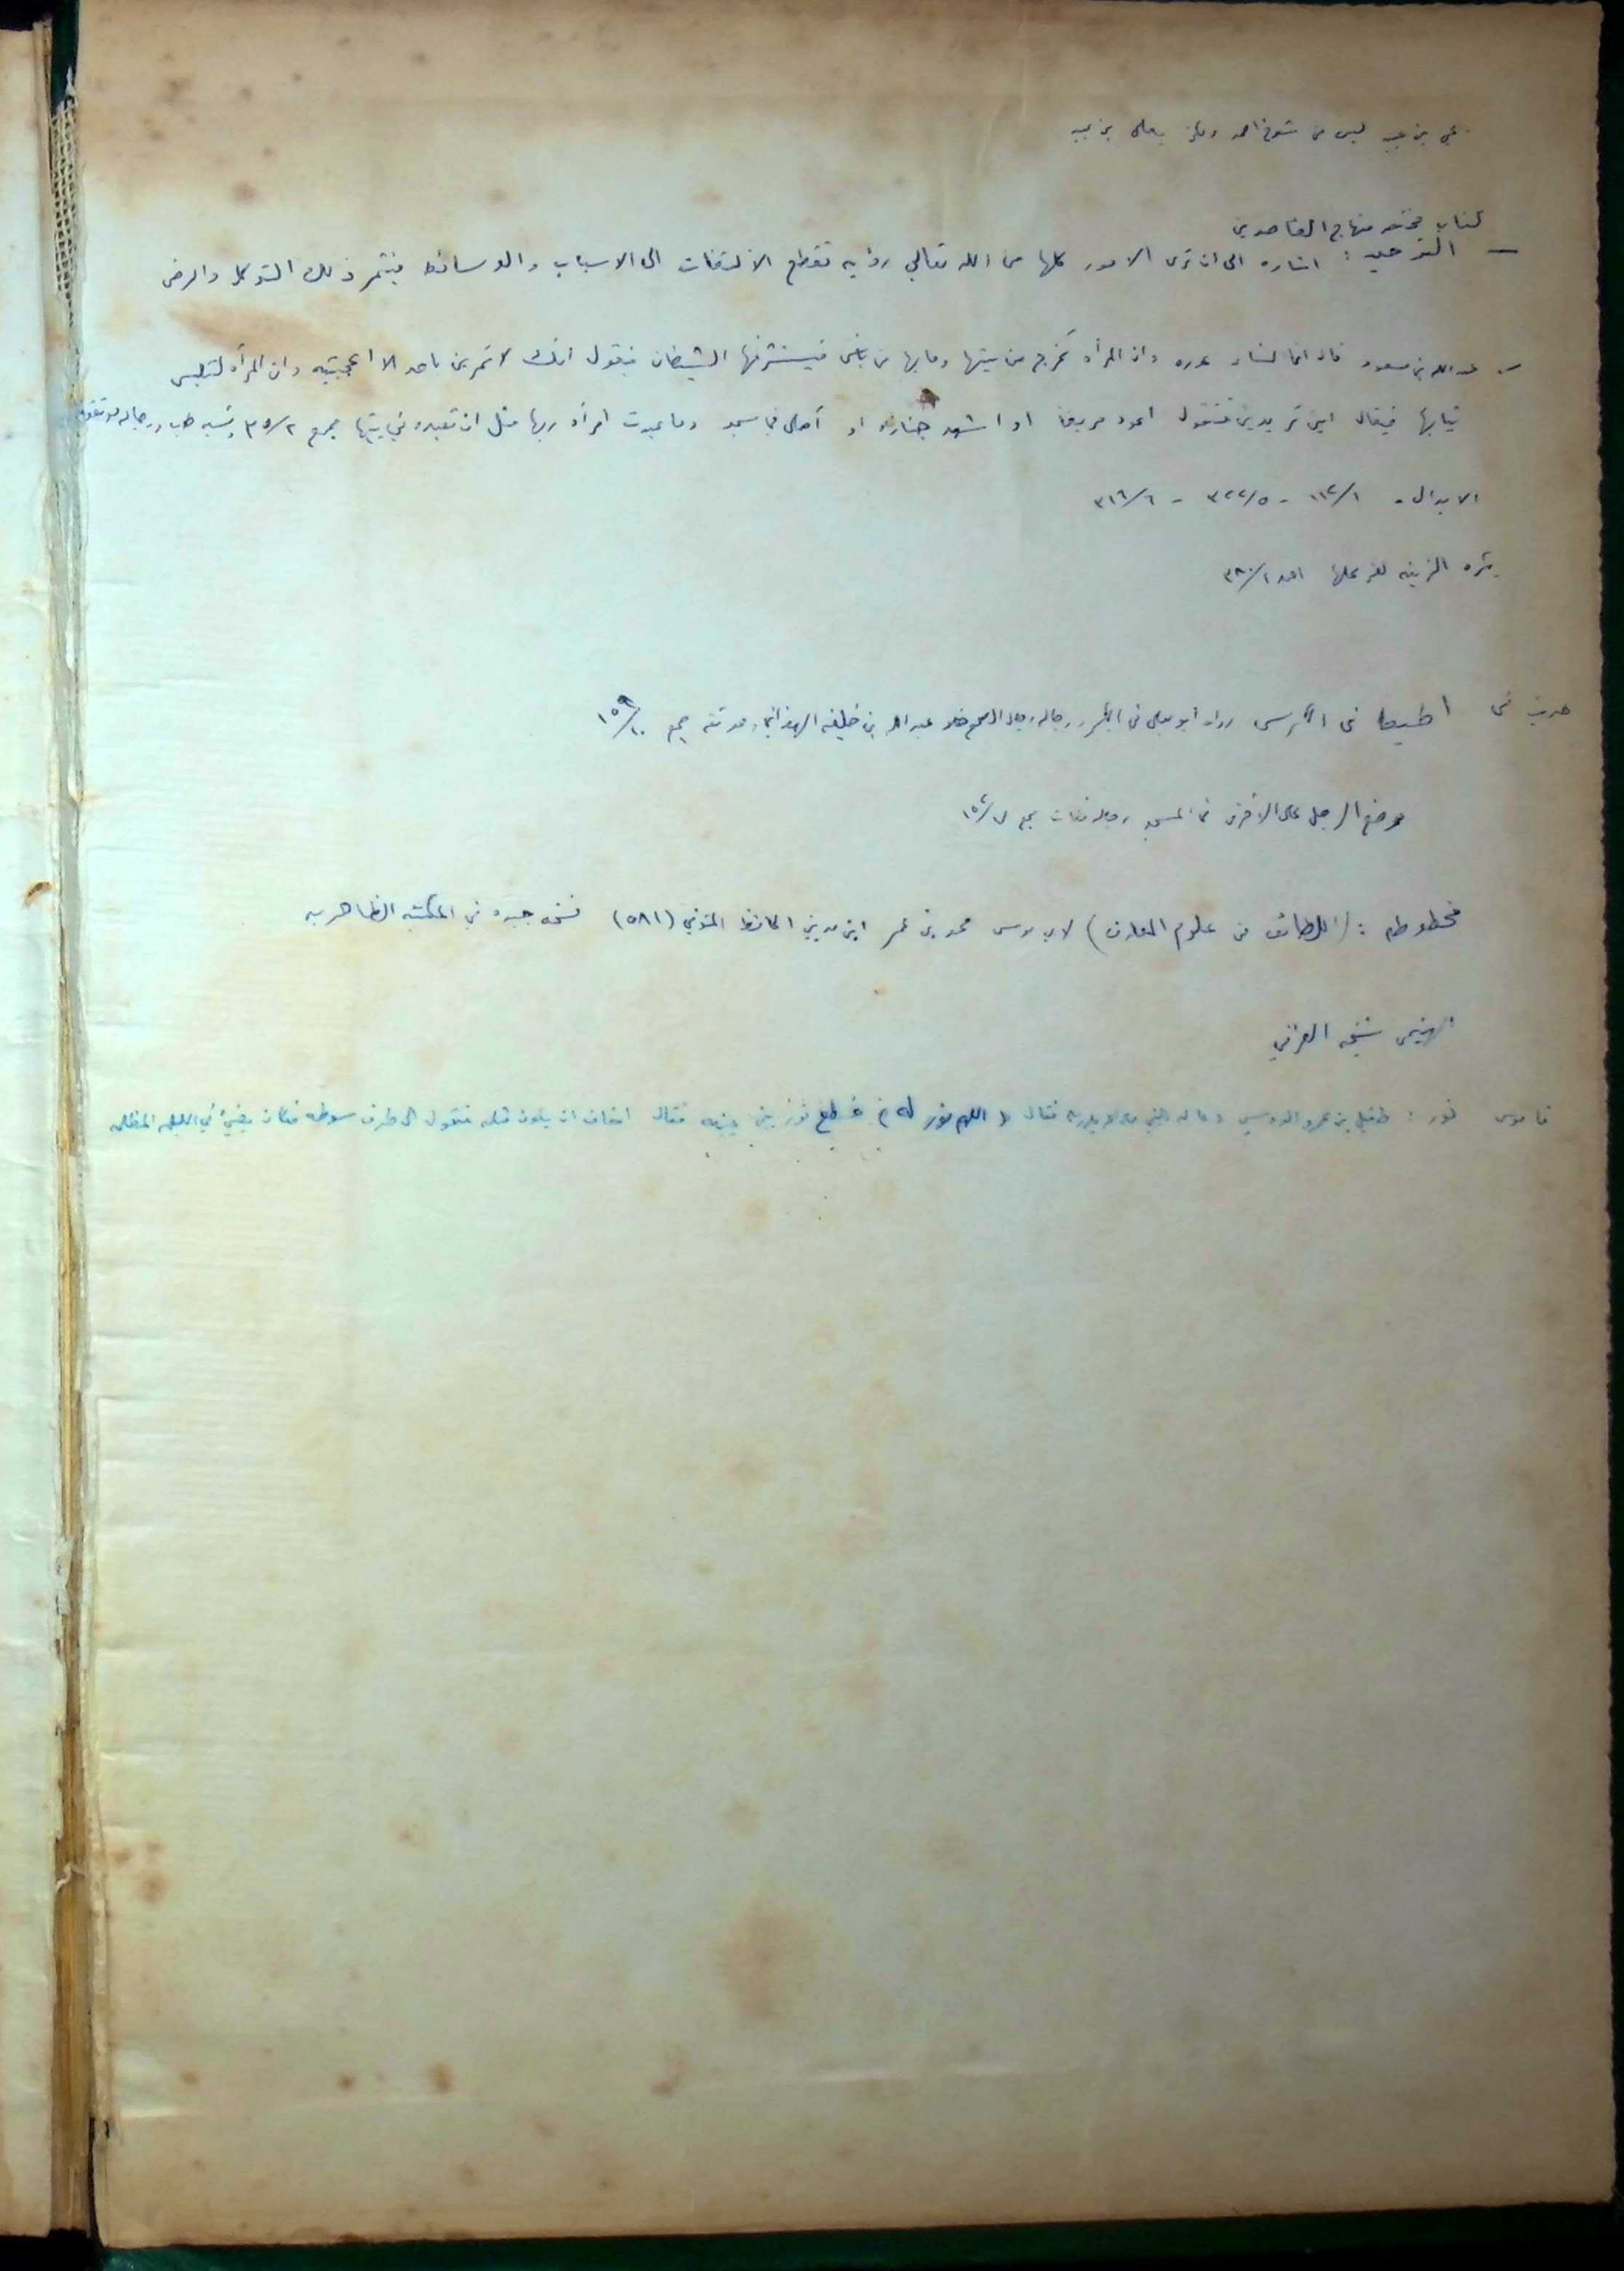 ليس من شيوخ احمد يعلى بن
كتاب مختصر منهاج القاصدين
— التوحيد : اشاره الى ان ترى الامور كلها من الله تعالى رؤيه تقطع الالتفات الى الاسباب والوسائط فيثمر ذلك التوكل والرضى
— عبد الله بن مسعود قال انما النساء عوره وان المرأه تخرج من بيتها وما بها من بأس فيستشرفها الشيطان فيقول انك لا تمرين باحد الا اعجبتيه وان المرأه لتلبس
ثيابها فيقال اين تريدين فتقول اعود مريضا او اشهد جنازه او أصلي في مسجد وما عبدت امرأه ربها مثل ان تعبده في بيتها مجمع ٣٥/٢
الابدال - ١١٢/١ - ٣٢٢/٥ - ٣١٦/٦
الزينه لغير احمد ٣٨٠/١
حديث في اطيط في الكرسي رواه أبو يعلى في الكبير ورجاله رجال الصحيح عبد الله بن خليفه الهمذاني وهو ثقه مجمع ١٥٩/١٠
وضع الرجل على الاخرى في المسجد رجاله ثقات
مخطوطه : (اللطائف من علوم المعارف) لابي موسى محمد بن عمر المديني الحافظ المتوفي (٥٨١) نسخه جيده في المكتبه الظاهريه
الهيثمي شيخه العراقي
قاموس نور : طفيل بن عمرو الدوسي دعا له النبي فقال « اللهم نور له » فسطع نور بين عينيه فقال اخاف ان يكون مثله فتحول الى طرف سوطه فكان يضيئ في الليله المظلمه